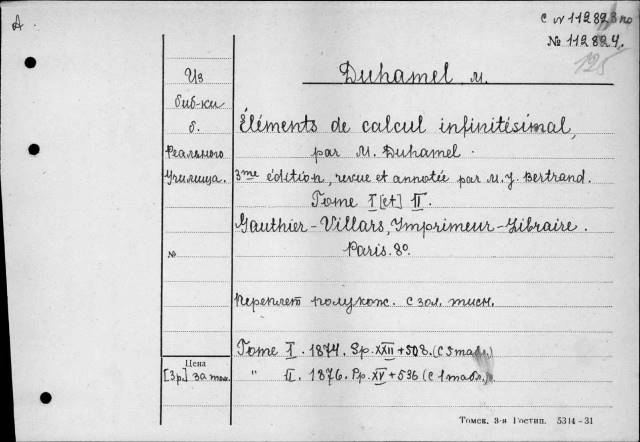 А.
с № 112823 по
№ 112824.
125
Duhamel, M.
Из
биб-ки
б.
Реального
Училища.
Éléments de calcul infinitésimal,
par M. Duhamel.
3me édition, revue et annotée par M. J. Bertrand.
Tome I [et] II.
Gauthier-Villars, Imprimeur-Libraire.
№
Paris. 8º.
Переплет полукож. с зол. тисн.
Tome I. 1874. Pp. XXII + 508. (с 5 табл.)
Цена
[3р.] за том.
" II. 1876. Pp. XV + 536 (с 1 табл.).
Томск. 3-я Гостип. 5314-31